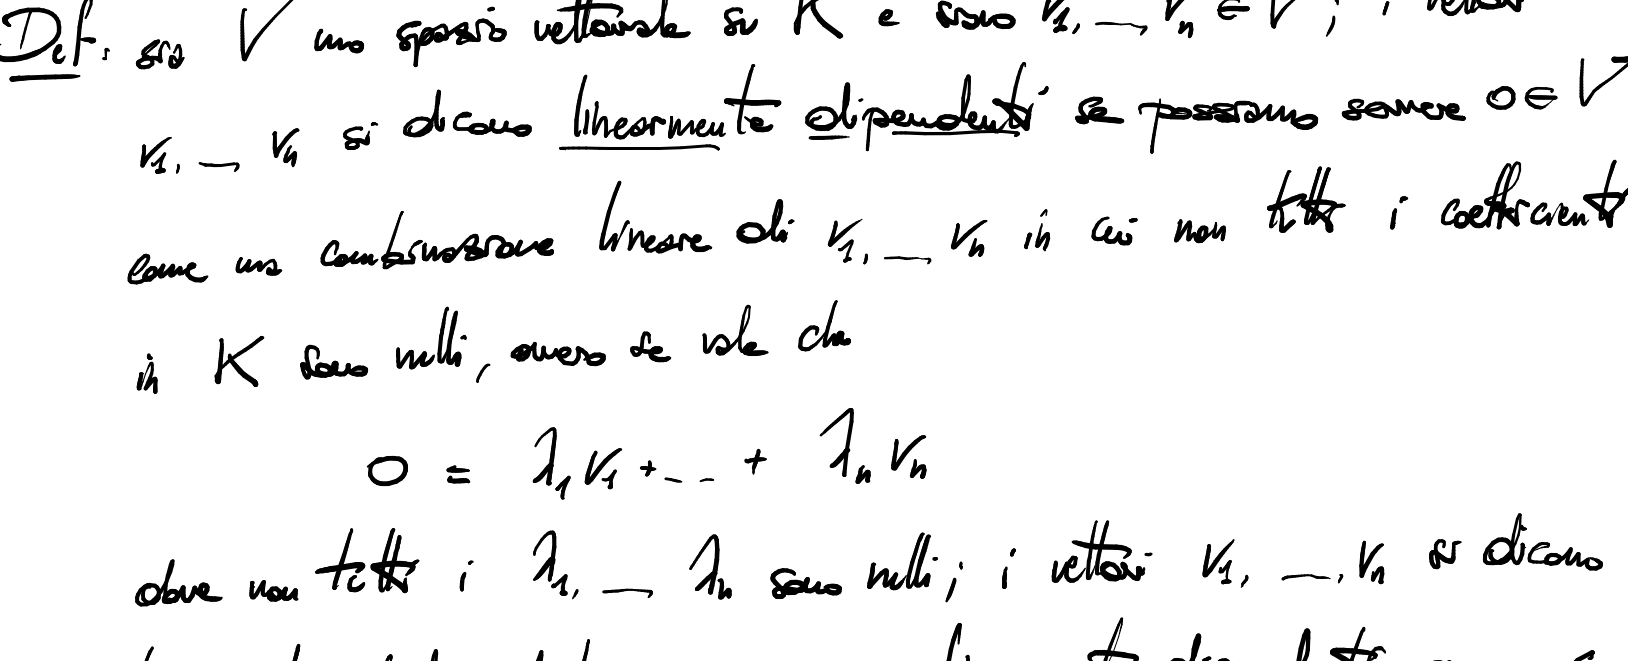 Def. sia V uno spazio vettoriale su K e siano v₁, __, vₙ ∈ V; i vettori
v₁, __ vₙ si dicono linearmente dipendenti se possiamo scrivere 0 ∈ V
come una combinazione lineare di v₁, __ vₙ in cui non tutti i coefficienti
in K sono nulli, ovvero se vale che
0 = λ₁ v₁ + -- + λₙ vₙ
dove non tutti i λ₁, __ λₙ sono nulli; i vettori v₁, __, vₙ si dicono